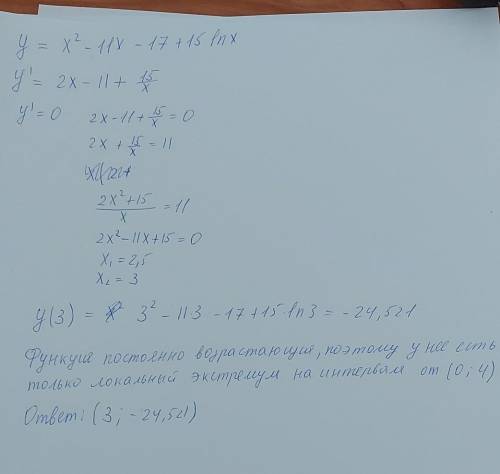 y = x² - 11x - 17 + 15 ln x
y' = 2x - 11 + 15/x
y' = 0 2x - 11 + 15/x = 0
2x + 15/x = 11
(2x² + 15)/x = 11
2x² - 11x + 15 = 0
x₁ = 2,5
x₂ = 3
y(3) = 3² - 11·3 - 17 + 15·ln 3 = -24,521
Функция постоянно возрастающая, поэтому у нее есть
только локальный экстремум на интервал от (0; 4)
Ответ: (3; -24,521)